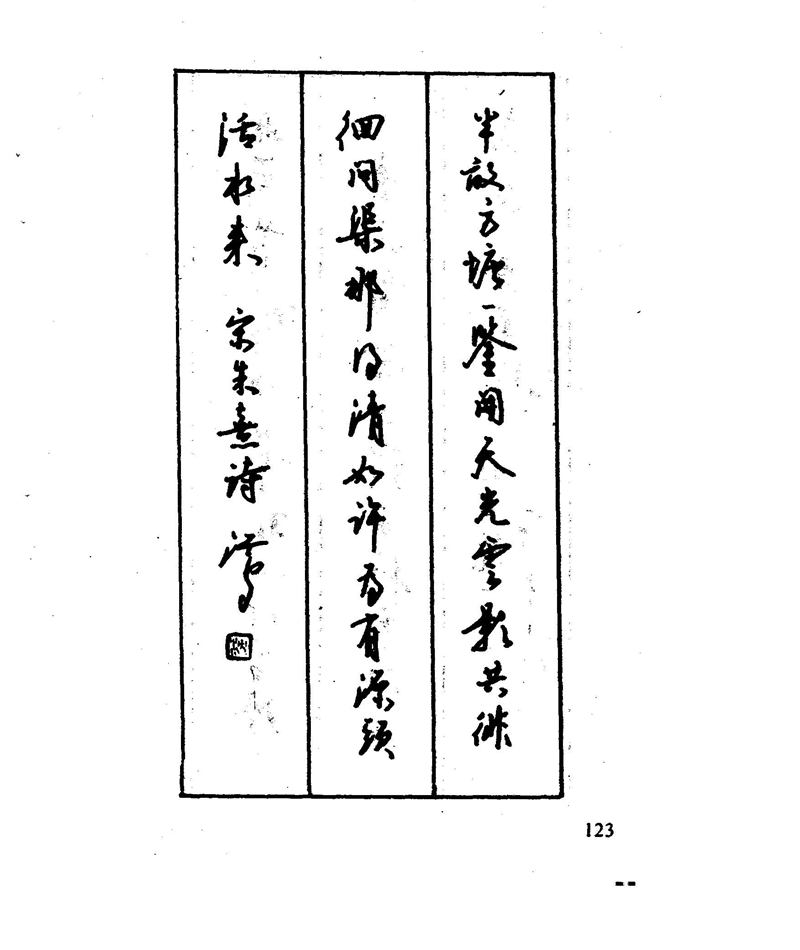 半畝方塘一鑒開天光雲影共徘
徊问渠那得清如许为有源頭
活水来 宋朱熹诗
123